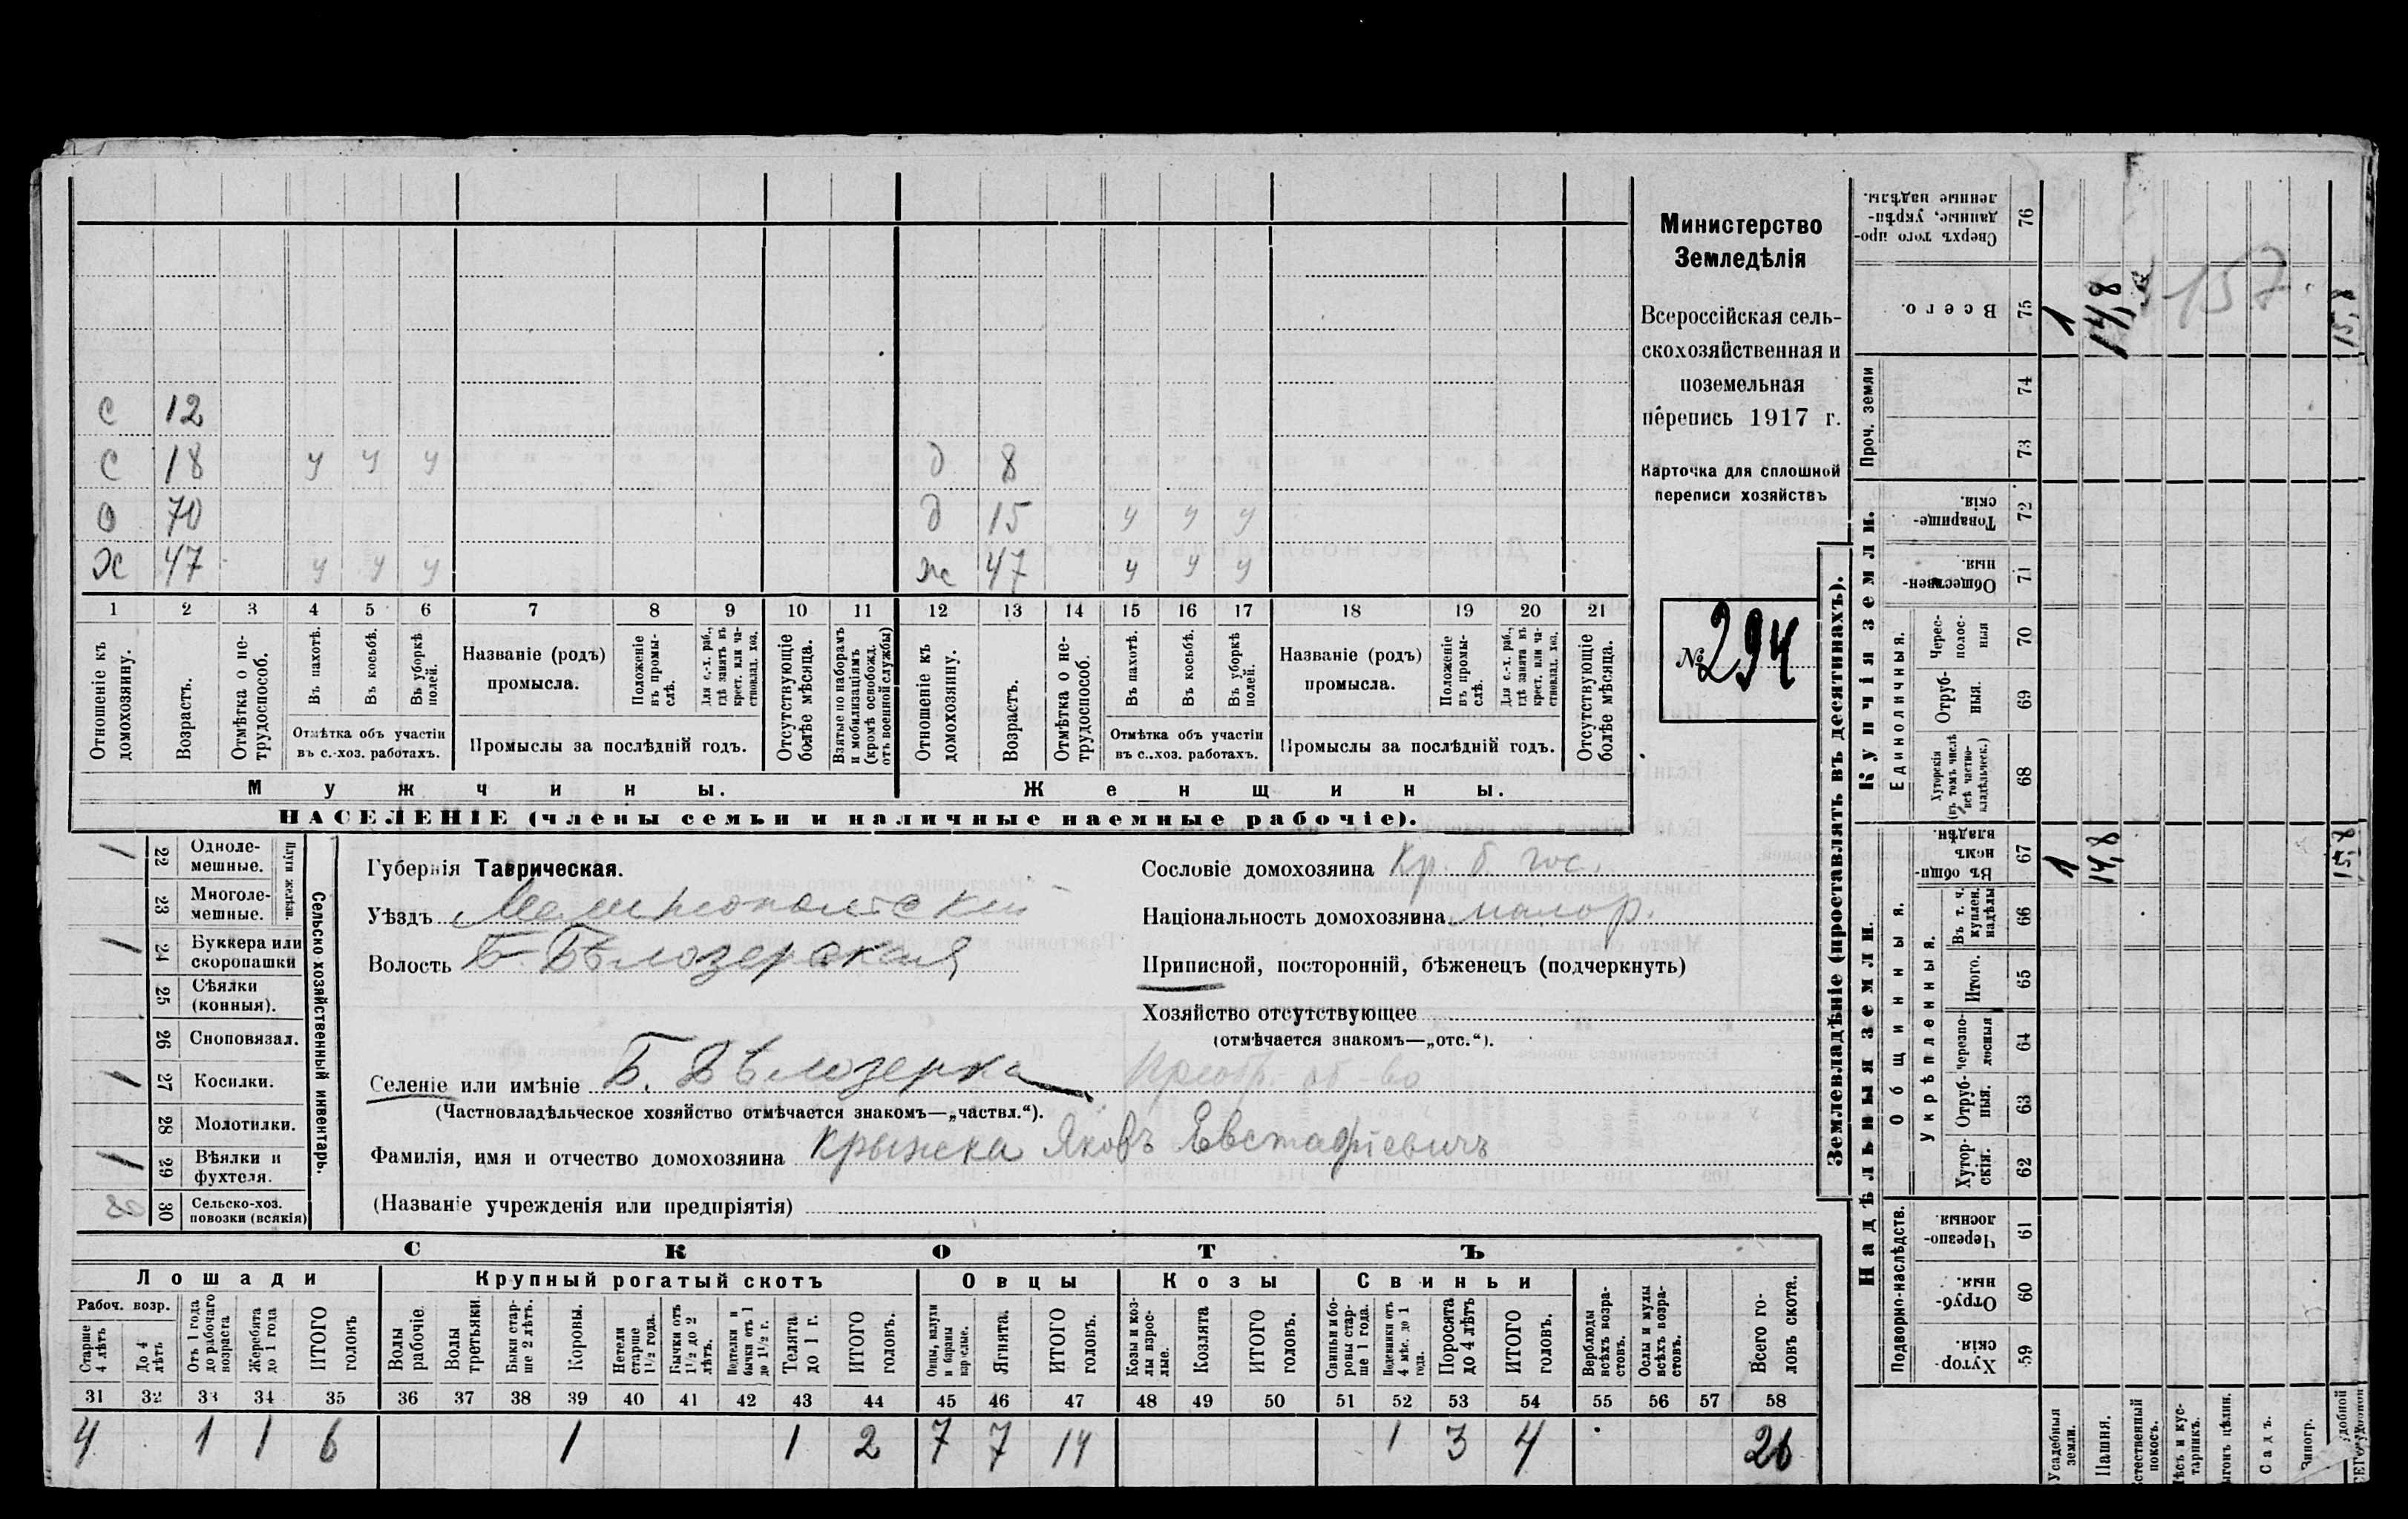 с 12
с 18 у у у д 8
о 70 д 15 у у у
х 47 у у у ж 47 у у у
1 2 3 4 5 6 7 8 9 10 11 12 13 14 15 16 17 18 19 20 21
Отношеніе къ домохозяину.
Возрастъ.
Отмѣтка о не-
трудоспособ.
Въ пахотѣ.
Въ косьбѣ.
Въ уборкѣ полей.
Отмѣтка объ участіи
въ с.-хоз. работахъ.
Названіе (родъ)
промысла.
Положеніе
въ промы-
слѣ.
Для с.-х. раб.,
гдѣ занятъ въ
крест. или ча-
стновлад. хоз.
Промыслы за послѣдній годъ.
Отсутствующіе
болѣе мѣсяца.
Взятые по наборамъ
и мобилизаціямъ
(кромѣ освобожд.
отъ военной службы)
Отношеніе къ
домохозяину.
Возрастъ.
Отмѣтка о не-
трудоспособ.
Въ пахотѣ.
Въ косьбѣ.
Въ уборкѣ
полей.
Отмѣтка объ участіи
въ с.-хоз. работахъ.
Названіе (родъ)
промысла.
Положеніе
въ промы-
слѣ.
Для с.-х. раб.,
гдѣ занята въ
крест. или ча-
стновлад. хоз.
Промыслы за послѣдній годъ.
Отсутствующіе
болѣе мѣсяца.
Мужчины. Женщины.
НАСЕЛЕНІЕ (члены семьи и наличные наемные рабочіе).
Министерство
Земледѣлія
Всероссійская сель-
скохозяйственная и
поземельная
перепись 1917 г.
Карточка для сплошной
переписи хозяйствъ
№ 294
Сельско хозяйственный инвентарь.
Плуги желѣзн.
1 22 Одноле-
мешные.
23 Многоле-
мешные.
1 24 Буккера или
скоропашки
25 Сѣялки
(конныя).
26 Сноповязал.
1 27 Косилки.
28 Молотилки.
1 29 Вѣялки и
фухтеля.
30 Сельско-хоз.
повозки (всякія)
Губернія Таврическая.
Уѣздъ Мелитопольскій
Волость Б-Бѣлозерская
Селеніе или имѣніе Б. Бѣлозерка Преобр. об-во
(Частновладѣльческое хозяйство отмѣчается знакомъ—„частвл.“).
Фамилія, имя и отчество домохозяина Крыжка Яковъ Евстафіевичъ
(Названіе учрежденія или предпріятія)
Сословіе домохозяина Кр. б. гос.
Національность домохозяина малор.
Приписной, посторонній, бѣженецъ (подчеркнуть)
Хозяйство отсутствующее
(отмѣчается знакомъ—„отс.“).
СКОТЪ
Лошади Крупный рогатый скотъ Овцы Козы Свиньи
Рабоч. возр.
Старше
4 лѣтъ
До 4
лѣтъ
Отъ 1 года
до рабочаго
возраста
Жеребята
до 1 года
ИТОГО
головъ
Волы
рабочіе
Волы
третьяки.
Быки стар-
ше 2 лѣтъ.
Коровы.
Нетели
старше
1½ года.
Бычки отъ
1½ до 2
лѣтъ.
бычки отъ 1
до 1½ г.
Телята
до 1 г.
ИТОГО
головъ.
Овцы, валухи
и бараны
взрослые.
Ягнята.
ИТОГО
головъ.
Козы и коз-
лы взрос-
лые.
Козлята
ИТОГО
головъ.
Свиньи и бо-
ровы стар-
ше 1 года.
Подсвинки отъ
4 мѣс. до 1
года.
Поросята
до 4 лѣтъ
ИТОГО
головъ.
Верблюды
всѣхъ возра-
стовъ.
Ослы и мулы
всѣхъ возра-
стовъ.
Всего го-
ловъ скота.
31 32 33 34 35 36 37 38 39 40 41 42 43 44 45 46 47 48 49 50 51 52 53 54 55 56 57 58
4 1 1 6 1 1 2 7 7 14 1 3 4 26
Землевладѣніе (проставлять въ десятинахъ).
Купчія земли.
Сверхъ того про-
данные, укрѣп-
ленные надѣлы.
76
Всего.
75 1 14,8 157 15,8
Проч. земли
74
73
Товарище-
скія.
72
Обществен-
ныя.
71
Единоличныя.
Черес-
полос-
ныя
70
Отруб-
ныя.
69
Хуторскія
(въ томъ числѣ
всѣ частно-
владѣльческ.)
68
Надѣльныя земли.
Общинныя.
Въ общи-
номъ
владѣн.
67 1 14,8 15,8
Укрѣпленныя.
Въ т. ч.
куплен.
надѣлы
66
Итого.
65
черезпо-
лосныя
64
Отруб-
ныя.
63
Хутор-
скія.
62
Подворно-наслѣдств.
Черезпо-
лосныя
61
Отруб-
ныя.
60
Хутор-
скія
59
Усадебныя
земли.
Пашня.
стественный
покосъ.
ѣсъ и кус-
тарникъ.
ыгонъ цѣлин.
Садъ.
Виногр.
удобной